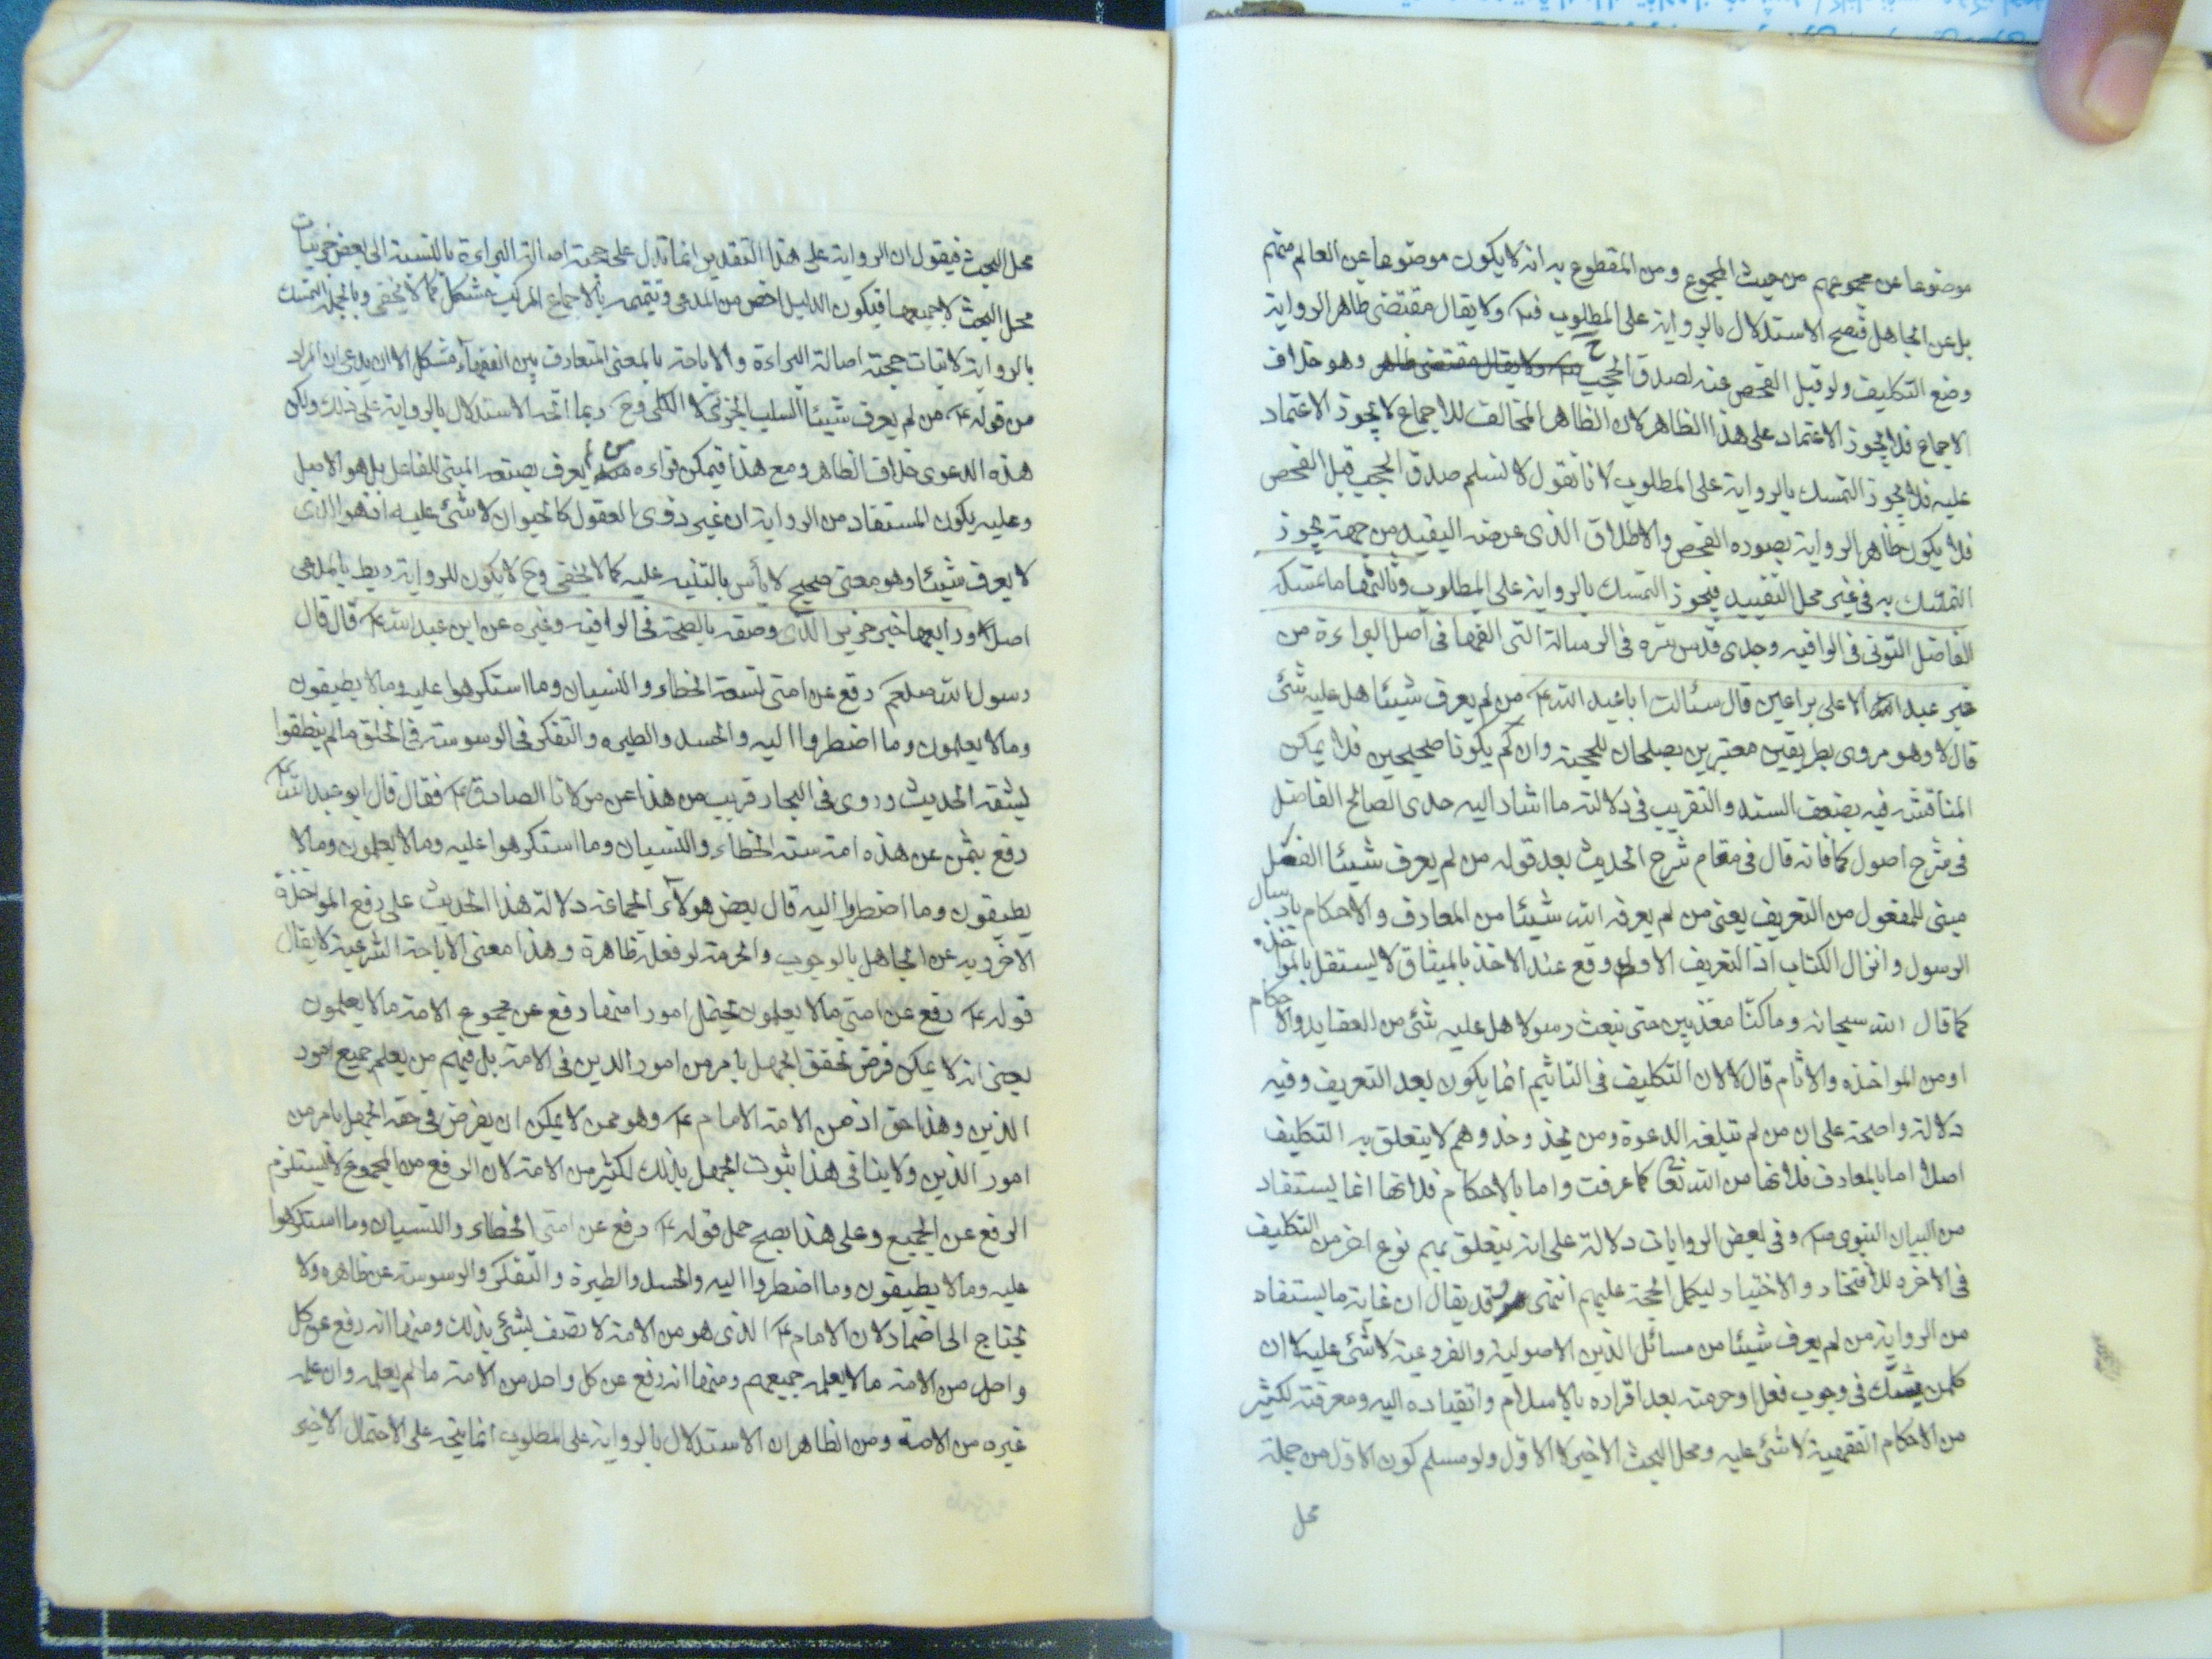 موضوعا عن مجموعهم من حيث المجموع ومن المقطوع به انه لا يكون موضوعا عن العالم منهم
بل عن الجاهل فيصح الاستدلال بالرواية على المطلوب ولا يقال مقتضى ظاهر الرواية
وضع التكليف ولو قبل الفحص عنه لصدق الحجب ح وهو خلاف
الاجماع فلا يجوز الاعتماد على هذا الظاهر لان الظاهر المخالف للاجماع لا يجوز الاعتماد
عليه فلا يجوز التمسك بالرواية على المطلوب لانا نقول لا نسلم صدق الحجب قبل الفحص
فلا يكون ظاهر الرواية بصوره الفحص والاطلاق الذى عرضه التقييد من جهة يجوز
التمسك به فى غير محل التقييد فيجوز التمسك بالرواية على المطلوب وثالثها ما تمسك به
الفاضل التونى فى الوافيه وجدى قدس سره فى الرسالة التى الفها فى اصل البراءة من
خبر عبد الاعلى بن اعين قال سئالت ابا عبد الله ع من لم يعرف شيئا هل عليه شئ
قال لا وهو مروى بطريقين معتبرين يصلحان للحجية وان لم يكونا صحيحين فلا يمكن
المناقشة فيه بضعف السند والتقريب فى دلالته ما اشار اليه جدى الصالح الفاضل
فى شرح اصول كا فانه قال فى مقام شرح الحديث بعد قوله من لم يعرف شيئا الفعل
مبنى للمفعول من التعريف يعنى من لم يعرفه الله شيئا من المعارف والاحكام بارسال
الرسول وانزال الكتاب اذ التعريف الاول وقع عند الاخذ بالميثاق لا يستقل بالمواخذه
كما قال الله سبحانه وما كنا معذبين حتى نبعث رسولا هل عليه شئ من العقايد والاحكام
او من المواخذه والاثام قال لا لان التكليف فى التاثيم انما يكون بعد التعريف وفيه
دلالة واضحة على ان من لم تبلغه الدعوة ومن يحذ وحذوهم لا يتعلق به التكليف
اصلا اما بالمعارف فلانها من الله تعا كما عرفت واما بالاحكام فلانها انما يستفاد
من البيان النبوى ص وفى بعض الروايات دلالة على انه يتعلق بهم نوع اخر من التكليف
فى الاخره للافتخار والاختيار ليكمل الحجة عليهم انتهى وقد يقال ان غاية ما يستفاد
من الرواية من لم يعرف شيئا من مسائل الدين الاصولية والفروعية لا شئ عليه لا ان
كلمن يشك فى وجوب فعل او حرمته بعد اقراره بالاسلام وانقياده اليه ومعرفته لكثير
من الاحكام الفقهية لا شئ عليه ومحل البحث الاخير لا الاول ولو سلم كون الاول من جملة
محل
محل البحث فيقول ان الرواية على هذا التقدير انما تدل على حجية اصالة البراءة بالنسبة الى بعض جزئيات
محل البحث لا جميعها فيكون الدليل اخص من المدعى وتتميمه بالاجماع المركب مشكل كما لا يخفى وبالجملة التمسك
بالرواية لاثبات حجية اصالة البراءة والاباحة بالمعنى المتعارف بين الفقهاء مشكل الا ان يدعى ان المراد
من قوله ع من لم يعرف شيئا السلب الجزئى لا الكلى وح ربما اتجه الاستدلال بالرواية على ذلك ولكن
هذه الدعوى خلاف الظاهر ومع هذا فيمكن قراءه يعرف بصيغه المبنى للفاعل بل هو الاصل
وعليه يكون المستفاد من الرواية ان غير ذوى العقول كالحيوان لا شئ عليه اذ هو الذى
لا يعرف شيئا وهو معنى صحيح لا بأس بالتنبيه عليه كما لا يخفى وح لا يكون للرواية ربط بالمدعى
اصلا ورابعها خبر حريز الذى وصفه بالصحة فى الوافيه وغيره عن ابن عبد الله ع قال قال
رسول الله صلعم رفع عن امتى تسعة الخطاء والنسيان وما استكرهوا عليه وما لا يطيقون
وما لا يعلمون وما اضطروا اليه والحسد والطيره والتفكر فى الوسوسة فى الخلق ما لم ينطقوا
بشفة الحديث وروى فى البحار قريب من هذا عن مولانا الصادق ع فقال قال ابو عبد الله ع
رفع عن هذه امة ستة الخطاء والنسيان وما استكرهوا عليه وما لا يعلمون وما لا
يطيقون وما اضطروا اليه قال بعض هولاء الجماعة دلالة هذا الحديث على رفع المواخذة
الاخرويه عن الجاهل بالوجوب والحرمة لو فعله ظاهرة وهذا معنى الاباحة الشرعية لا يقال
قوله ع رفع عن امتى ما لا يعلمون يحتمل امورا منها رفع عن مجموع الامة ما لا يعلمون
يعنى انه لا يمكن فرض تحقق الجهل بامر من امور الدين فى الامة بل فيهم من يعلم جميع امور
الدين وهذا حق اذ من الامة الامام ع وهو ممن لا يمكن ان يفرض فى حقه الجهل بامر من
امور الدين ولا ينافى هذا ثبوت الجهل بذلك لكثير من الامة لان الرفع من المجموع لا يستلزم
الرفع عن الجميع وعلى هذا يصح حمل قوله ع رفع عن امتى الخطاء والنسيان وما استكرهوا
عليه وما لا يطيقون وما اضطروا اليه والحسد والطيرة والتفكر والوسوسة عن ظاهره ولا
يحتاج الى اضمار لان الامام ع الذى هو من الامة لا يتصف بشئ بذلك ومنها انه رفع عن كل
واحد من الامة ما لا يعلمه جميعهم ومنها انه رفع عن كل واحد من الامة ما لم يعلمه وان علمه
غيره من الامة ومن الظاهر ان الاستدلال بالرواية على المطلوب انما يتجه على الاحتمال الاخير